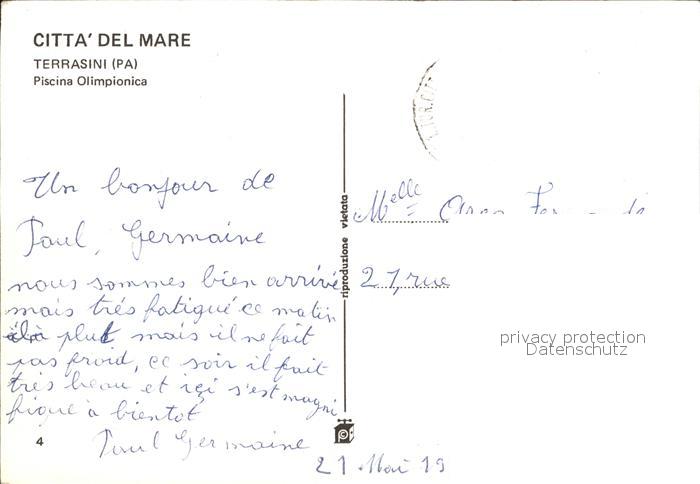 CITTA' DEL MARE
TERRASINI (PA)
Piscina Olimpionica
Un bonjour de
Paul, Germaine
nous sommes bien arrivé
mais trés fatigué ce matin
plut mais il ne fait
pas froid, ce soir il fait
très beau et içi s'est magni
fique à bientot
Paul Germaine
4
riproduzione vietata
Melle
21, rue
privacy protection
Datenschutz
21 Mai 19